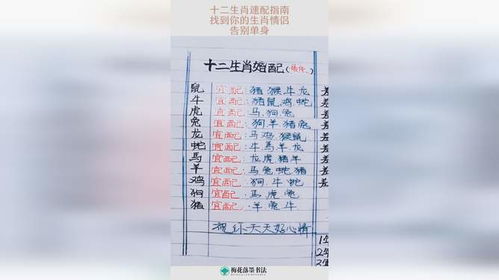 十二生肖速配指南
找到你的生肖情侣
告别单身
十二生肖婚配
鼠 宜配: 猪猴牛龙
牛 宜配: 猪鼠鸡蛇
虎 宜配: 马狗兔
兔 宜配: 狗羊猪兔
龙 宜配: 马鸡猴鼠
蛇 宜配: 牛马羊龙
马 宜配: 龙虎猪羊
羊 宜配: 马兔蛇猪
鸡 宜配: 狗牛蛇
狗 宜配: 马虎兔
猪 宜配: 羊兔牛
祝你天天好心情
梅花落墨书法